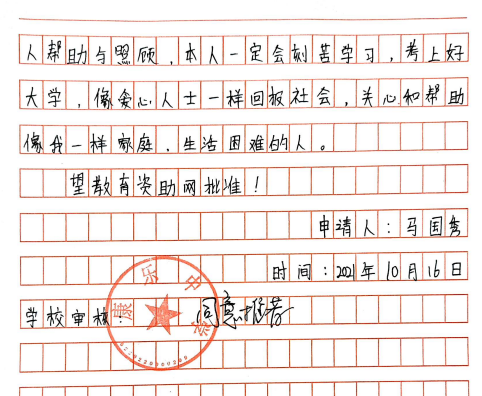 人帮助与照顾，本人一定会刻苦学习，考上好
大学，像爱心人士一样回报社会，关心和帮助
像我一样家庭、生活困难的人。
望教育资助网批准！
申请人：马国秀
时间：2021年10月16日
学校审核：同意推荐
康乐中